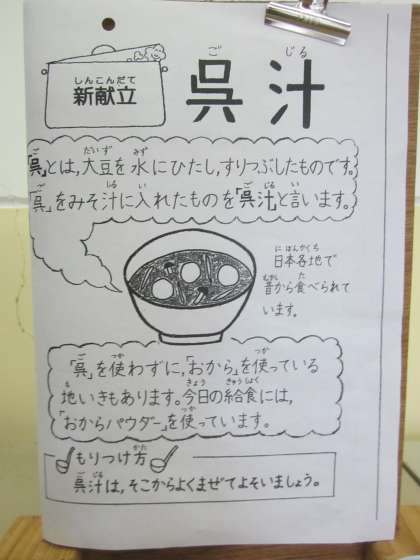 しんこんだて
新献立
ご じる
呉汁
「呉」とは,大豆を水にひたし,すりつぶしたものです。
「呉」をみそ汁に入れたものを「呉汁」と言います。
日本各地で
昔から食べられて
います。
「呉」を使わずに,「おから」を使っている
地いきもあります。今日の給食には,
「おからパウダー」を使っています。
もりつけ方
呉汁は,そこからよくまぜてよそいましょう。